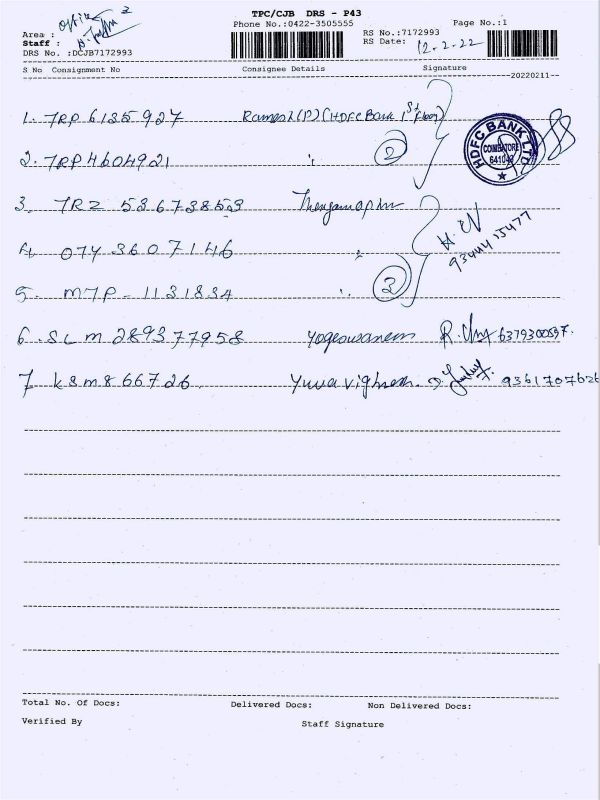 TPC/CJB DRS - P43
Phone No.:0422-3505555
Page No.:1
Area : Office
Staff :
DRS No. :DCJB7172993
RS No.:7172993
RS Date: 12.2.22
S No Consignment No Consignee Details Signature
20220211
1. TRP 6135927 Ramesh (P) (HDFC Bank 1st Floor)
HDFC BANK LTD
COIMBATORE
641043
2. TRP 4604921 " 2
3. TRZ 536738553
H.
9344415477
4. 074 36071446 "
5. MTP - 1131834 " 3
6. SLM 289377958 Yogeswaran R. 6379300597.
7 KSM 866726 Yuva vignesh. 9361707626
Total No. Of Docs: Delivered Docs: Non Delivered Docs:
Verified By Staff Signature